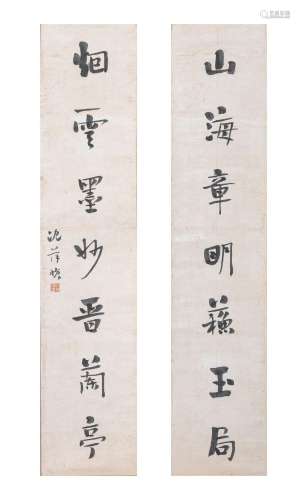 山海章明蘓玉局
烟雲墨妙晋蘭亭
沈